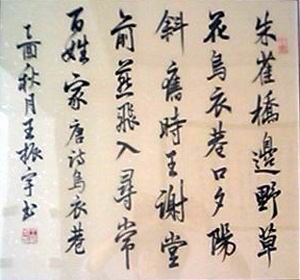 朱雀橋邊野草
花烏衣巷口夕陽
斜舊時王謝堂
前燕飛入尋常
百姓家 唐詩烏衣巷
乙酉秋月王振宇书